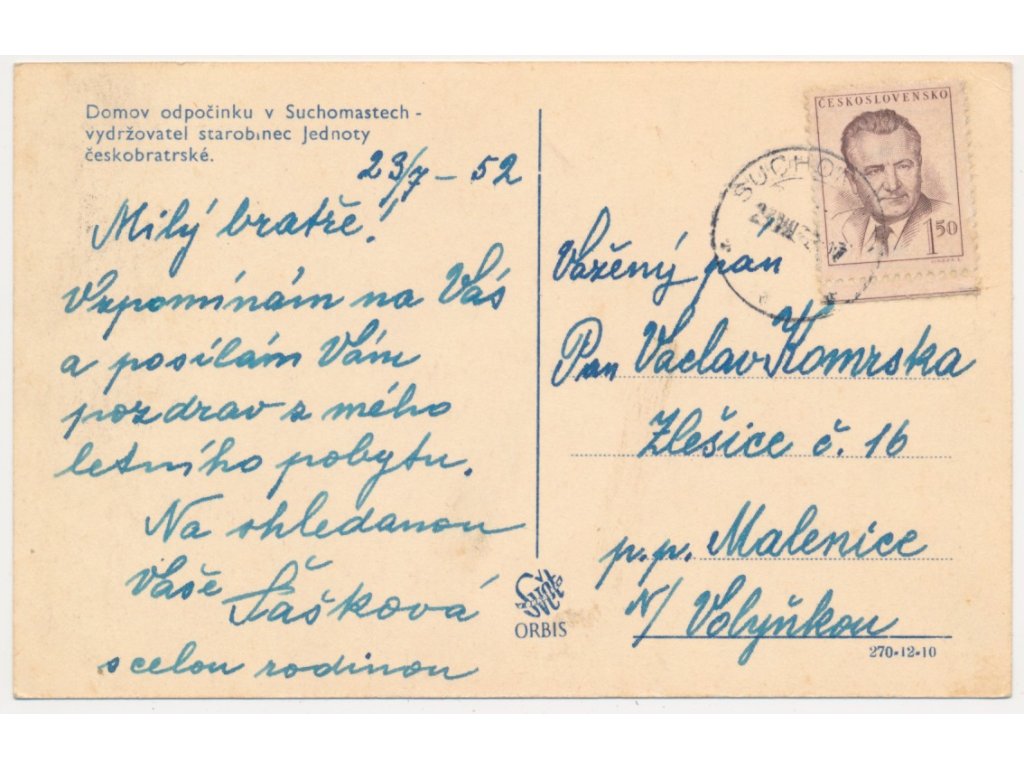 Domov odpočinku v Suchomastech -
vydržovatel starobinec Jednoty
českobratrské.
23/7 – 52
Milý bratře!
Vzpomínám na Vás
a posílám Vám
pozdrav z mého
letního pobytu.
Na shledanou
Vaše Šášková
s celou rodinou
ČESKOSLOVENSKO
1 50
SUCHO
Vážený pan
Pan Vaclav Komrska
Zlešice č. 16
p.p. Malenice
N/ Volyňkou
ORBIS
270-12-10